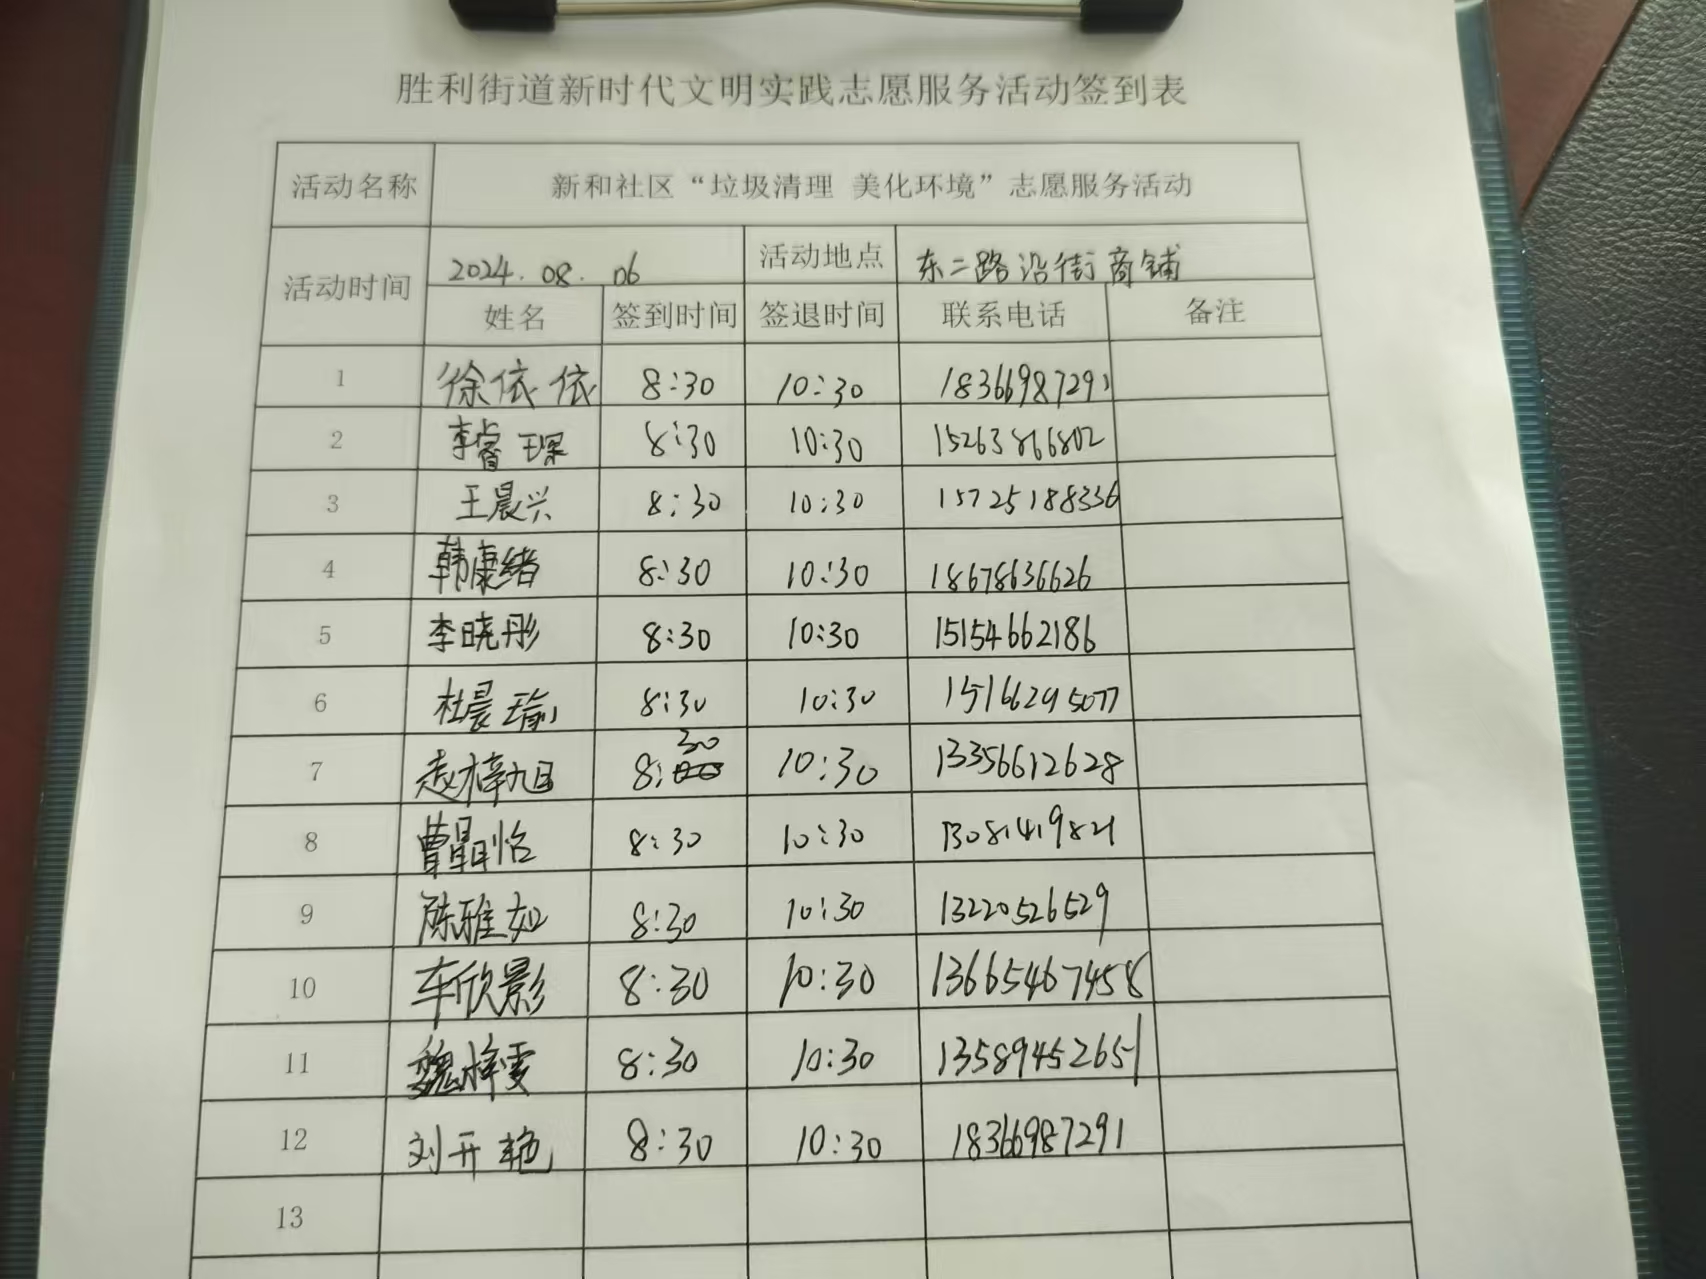 胜利街道新时代文明实践志愿服务活动签到表
活动名称 新和社区“垃圾清理 美化环境”志愿服务活动
活动时间 2024.08.06 活动地点 东二路沿街商铺
姓名 签到时间 签退时间 联系电话 备注
1 徐依依 8:30 10:30 18366987291
2 李睿琛 8:30 10:30 15263866802
3 王晨兴 8:30 10:30 15725188336
4 韩康绪 8:30 10:30 18678636626
5 李晓彤 8:30 10:30 15154662186
6 杜晨瑜 8:30 10:30 15166295077
7 赵梓旭 8:30 10:30 13356612628
8 曹晶怡 8:30 10:30 13081419821
9 陈雅如 8:30 10:30 13220526529
10 车欣影 8:30 10:30 13665467458
11 魏梓雯 8:30 10:30 13589452651
12 刘开艳 8:30 10:30 18366987291
13